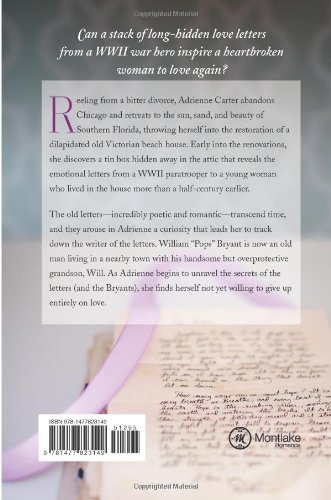 Can a stack of long-hidden love letters
from a WWII war hero inspire a heartbroken
woman to love again?
Reeling from a bitter divorce, Adrienne Carter abandons
Chicago and retreats to the sun, sand, and beauty of
Southern Florida, throwing herself into the restoration of a
dilapidated old Victorian beach house. Early into the renovations,
she discovers a tin box hidden away in the attic that reveals the
emotional letters from a WWII paratrooper to a young woman
who lived in the house more than a half-century earlier.
The old letters—incredibly poetic and romantic—transcend time,
and they arouse in Adrienne a curiosity that leads her to track
down the writer of the letters. William “Pops” Bryant is now an old
man living in a nearby town with his handsome but overprotective
grandson, Will. As Adrienne begins to unravel the secrets of the
letters (and the Bryants), she finds herself not yet willing to give up
entirely on love.
ISBN 978-1477823149
51295
9 781477 823149
M
Montlake
Romance
Copyrighted Material